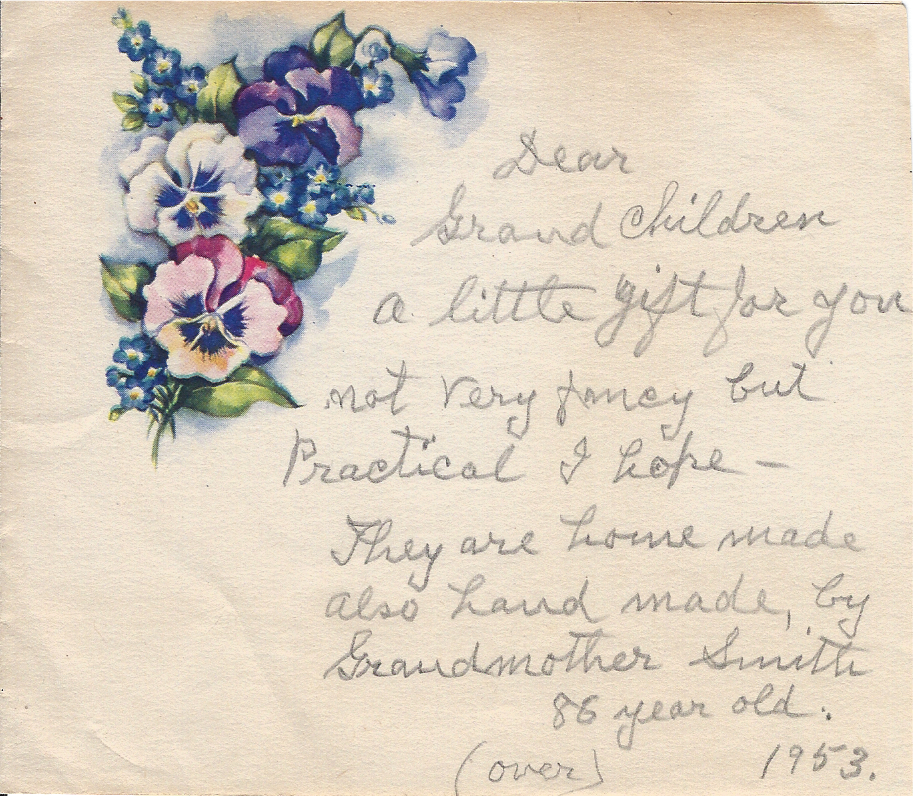 Dear
Grand Children
a little gift for you
not very fancy but
Practical I hope –
They are home made
also hand made, by
Grandmother Smith
86 year old.
(over) 1953.